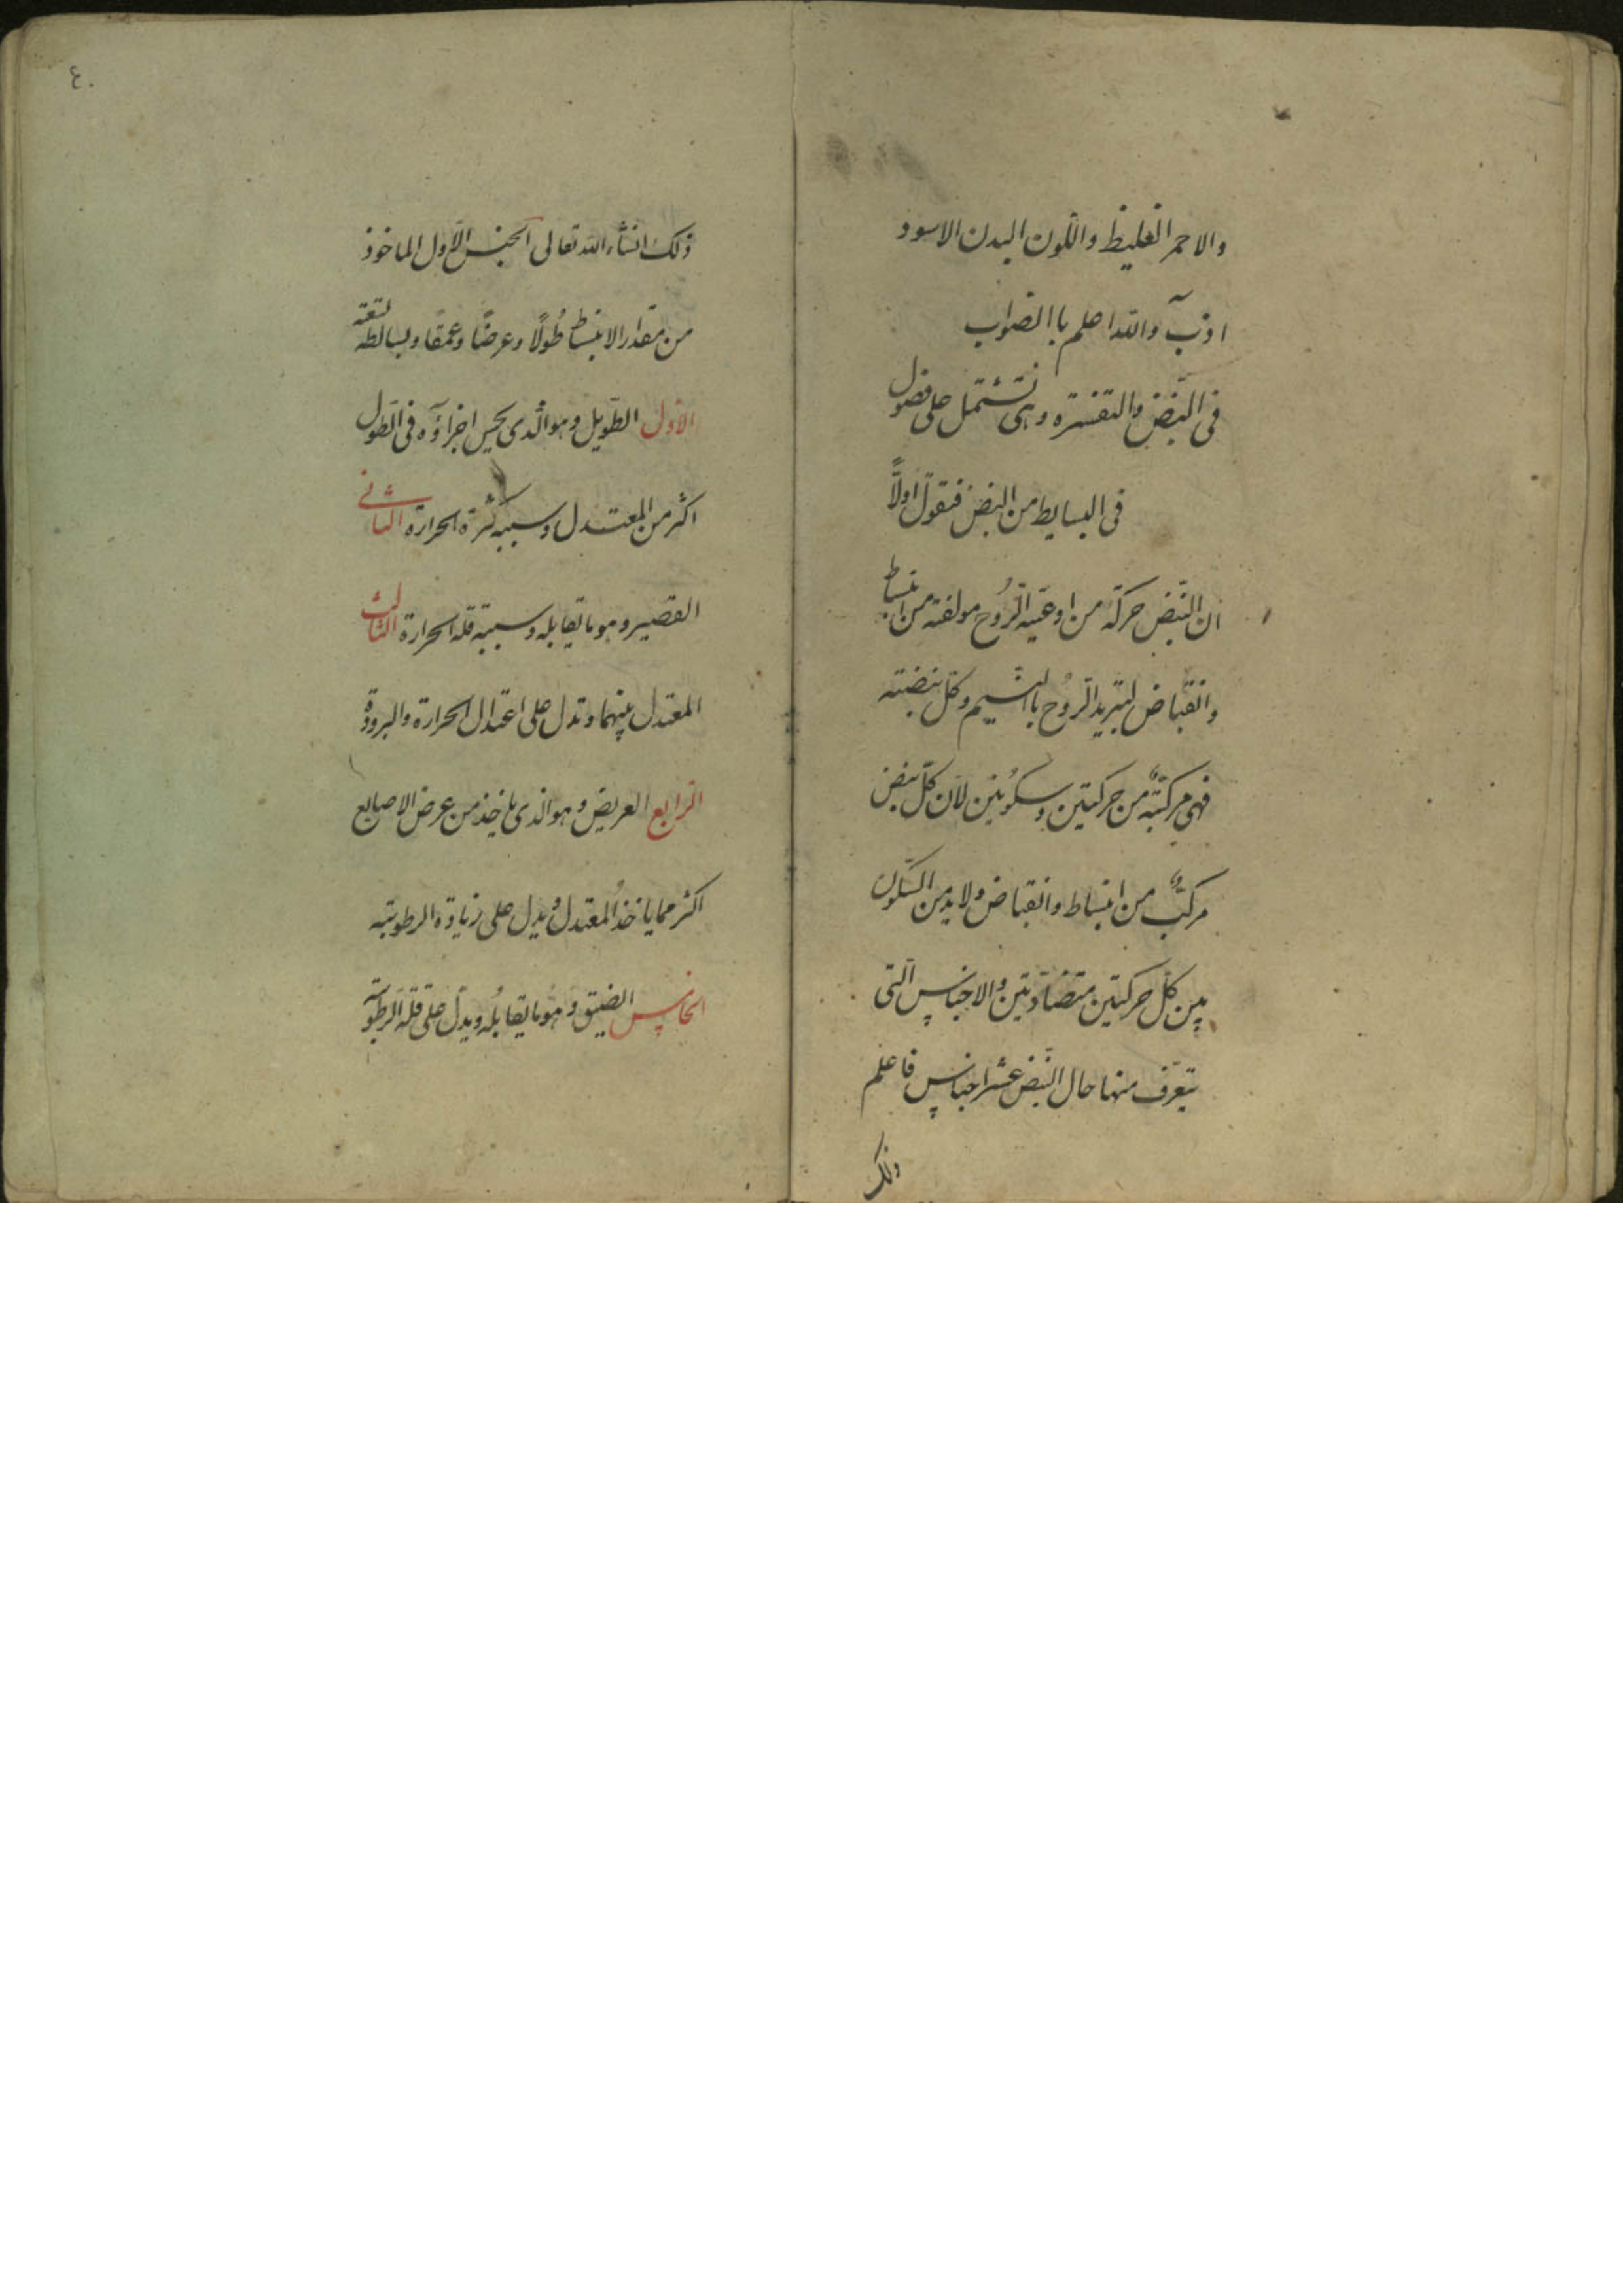 والاحمر الغليظ واللّون البدن الاسود
اذبّ والله اعلم با الصّواب
فى النّبض والتفسره وهى تشتمل على فصول
فى البسايط من النبض فنقول اولاً
ان النّبض حركة من اوعية الرّوح مولفة من انبساط
وانقباض لتبريد الرّوح با النسيم وكل نبضته
فهى مركبّة من حركتين وسكونين لان كلّ نبض
مركبٌ من انبساط وانقباض ولابد من السّكون
بين كلّ حركتين متضادّتين والاجناس الّتى
يتعرّف منها حال النّبض عشر اجناس فاعلم
ذلك
٤٠
ذلك انشاء الله تعالى الجنس الاوّل الماخوذ
من مقدار الانبساط طُولاً وعرضًا وعمقًا وبسائطه تسعة
الاوّل الطّويل وهو الّذى يحس اجزاؤه فى الطّول
اكثر من المعتدل وسببه كثرة الحرارة الثانى
القصير وهو ما تقابله وسببه قلة الحرارة الثالث
المعتدل بينهما وتدل على اعتدال الحرارة والبرودة
الرّابع العريض وهو الذى ياخذ من عرض الاصابع
اكثر مما ياخذ المعتدل ويدل على زيادة الرطوبته
الخامس الضيّق وهو ما يقابلُه ويدلّ على قلة الرّطوبة